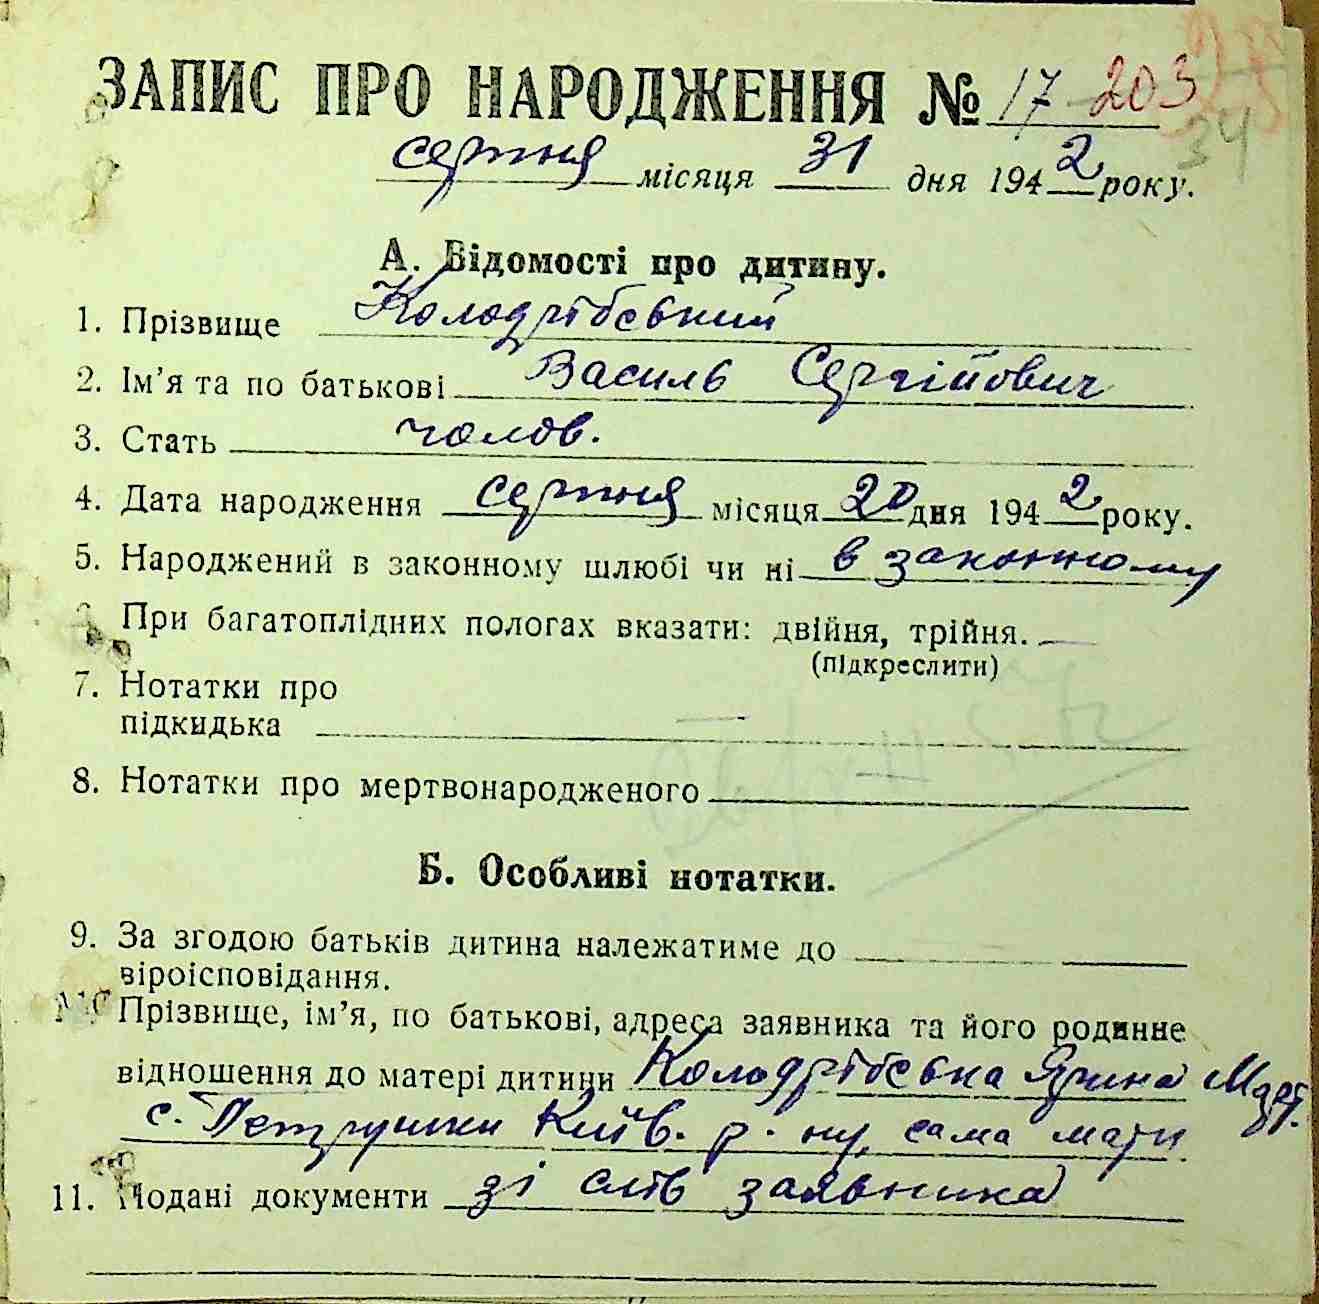 ЗАПИС ПРО НАРОДЖЕННЯ № 17 203
34
серпня місяця 31 дня 1942 року.
А. Відомості про дитину.
1. Прізвище Колодрібєвкий
2. Ім'я та по батькові Василь Сергійович
3. Стать чолов.
4. Дата народження серпня місяця 20 дня 1942 року.
5. Народжений в законному шлюбі чи ні в законному
При багатоплідних пологах вказати: двійня, трійня. —
(підкреслити)
7. Нотатки про
підкидька —
8. Нотатки про мертвонародженого
Б. Особливі нотатки.
9. За згодою батьків дитина належатиме до
віроісповідання.
Прізвище, ім'я, по батькові, адреса заявника та його родинне
відношення до матері дитини Колодрібєвка Ярина
с. Петрушки Київ. р-ну, сама мати
11. Подані документи зі слів заявника